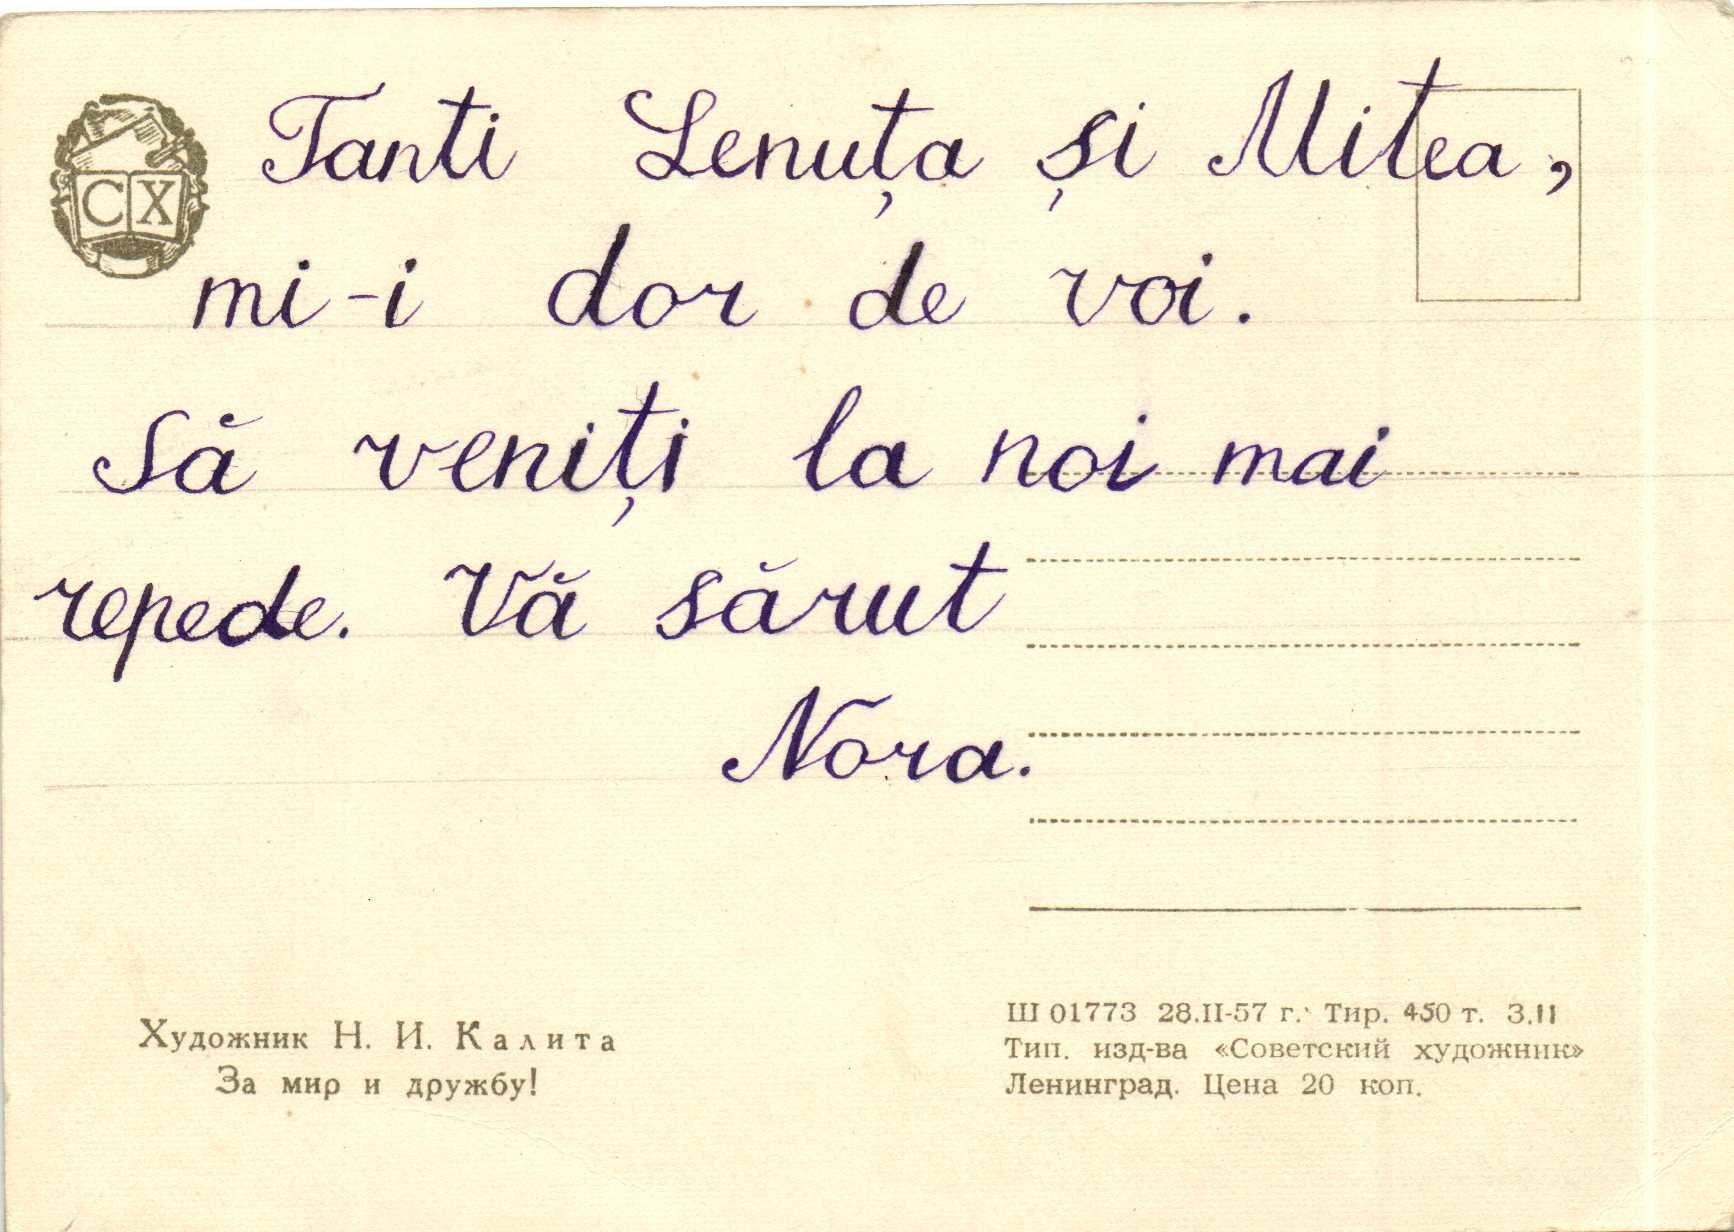 СХ
Tanti Lenuța și Mitea,
mi-i dor de voi.
Să veniți la noi mai
repede. Vă sărut
Nora.
Художник Н. И. Калита
За мир и дружбу!
Ш 01773 28.II-57 г. Тир. 450 т. З.11
Тип. изд-ва «Советский художник»
Ленинград. Цена 20 коп.